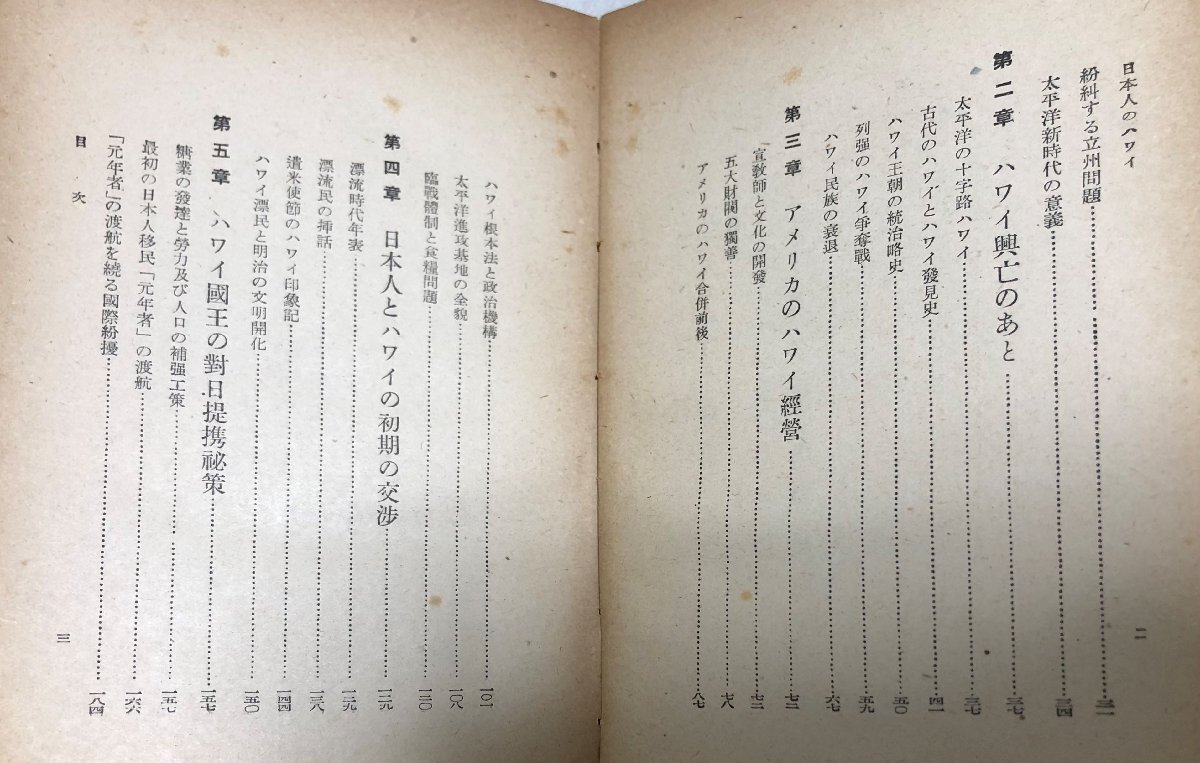 日本人のハワイ
紛糾する立州問題……三一
太平洋新時代の意義……三四
第二章 ハワイ興亡のあと……三七
太平洋の十字路ハワイ……三七
古代のハワイとハワイ發見史……四一
ハワイ王朝の統治略史……五〇
列强のハワイ爭奪戰……五九
ハワイ民族の衰退……六七
第三章 アメリカのハワイ經營……七二
宣敎師と文化の開發……七二
五大財閥の獨善……七八
アメリカのハワイ合併前後……八七
二
ハワイ根本法と政治機構……一〇一
太平洋進攻基地の全貌……一〇八
臨戰體制と食糧問題……一二〇
第四章 日本人とハワイの初期の交涉……一二九
漂流時代年表……一二九
漂流民の揷話……一三八
遣米使節のハワイ印象記……一四四
ハワイ漂民と明治の文明開化……一五〇
第五章 ハワイ國王の對日提携祕策……一五七
糖業の發達と勞力及び人口の補强工策……一五七
最初の日本人移民「元年者」の渡航……一六六
「元年者」の渡航を繞る國際紛擾……一八四
目次
三